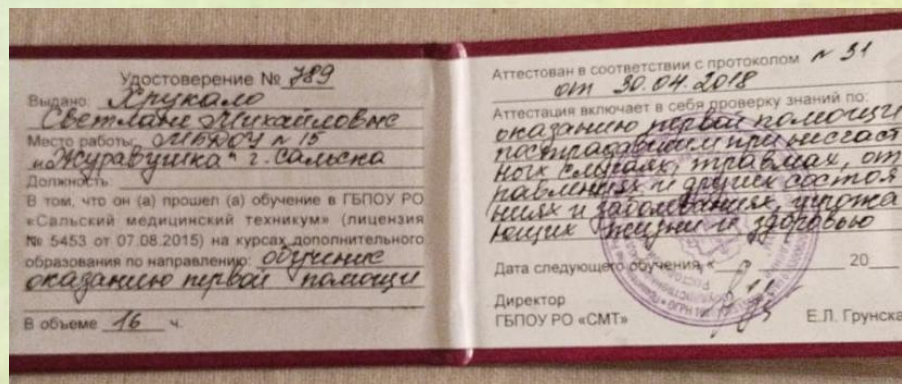 Удостоверение № 789
Выдано: Хрукало
Светлане Михайловне
Место работы: МБДОУ № 15
"Журавушка" г. Сальска
Должность:
В том, что он (а) прошел (а) обучение в ГБПОУ РО
«Сальский медицинский техникум» (лицензия
№ 5453 от 07.08.2015) на курсах дополнительного
образования по направлению: обучение
оказанию первой помощи
В объеме 16 ч.
Аттестован в соответствии с протоколом № 31
от 30.04.2018
Аттестация включает в себя проверку знаний по:
оказанию первой помощи
пострадавшим при несчаст
ных случаях, травмах, от
равлениях и других состоя
ниях и заболеваниях, угрожа
ющих жизни и здоровью
Дата следующего обучения «        20
Директор
ГБПОУ РО «СМТ»    Е.Л. Грунска